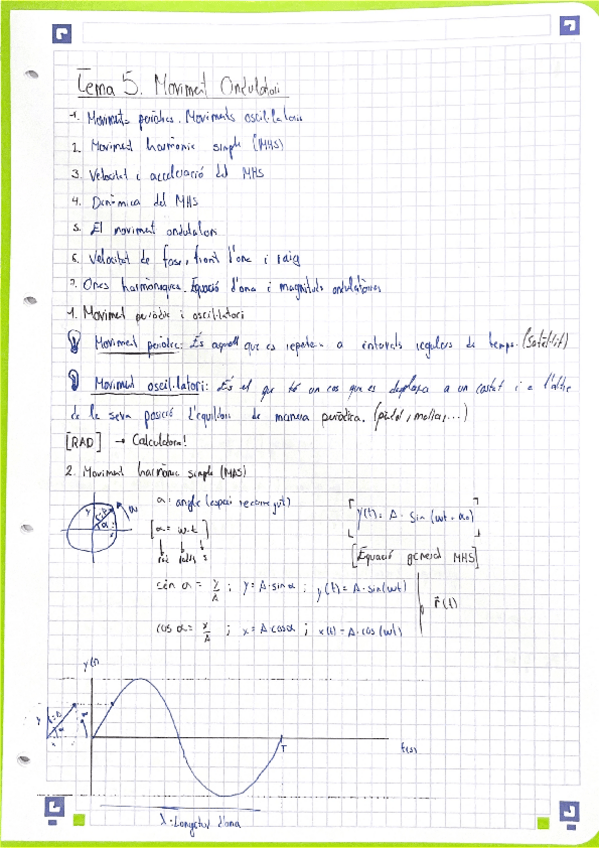 Tema 5. Moviment Ondulatori
1. Moviments periòdics. Moviments oscil·latoris
2. Moviment harmònic simple (MHS)
3. Velocitat i acceleració del MHS
4. Dinàmica del MHS
5. El moviment ondulatori
6. Velocitat de fase, front d'ona i raig
7. Ones harmòniques. Equació d'ona i magnituds ondulatòries
1. Moviment periòdic i oscil·latori
Moviment periòdic: És aquell que es repeteix a intervals regulars de temps. (Satèl·lit)
Moviment oscil·latori: És el que té un cos que es desplaça a un costat i a l'altre
de la seva posició d'equilibri de manera periòdica. (pèndol, molla,...)
[RAD] → Calculadora!
2. Moviment harmònic simple (MAS)
α: angle (espai recorregut)
[α = w·t]
rad rad/s s
y(t) = A · sin (wt + α₀)
[Equació general MHS]
sin α = y/A ; y = A·sin α ; y(t) = A·sin(wt)
cos α = x/A ; x = A·cos α ; x(t) = A·cos (wt)
r⃗(t)
y(t)
T
t(s)
λ: Longitud d'ona